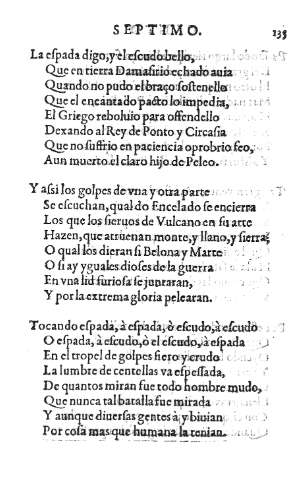 SEPTIMO. 135
La espada digo, y el escudo bello,
Que en tierra Damasirio echado auia
Quando no pudo el braço sostenello
Que el encantado pacto lo impedia,
El Griego reboluio para offendello
Dexando al Rey de Ponto y Circasia
Que no suffrio en paciencia oprobrio feo,
Aun muerto el claro hijo de Peleo.
Y assi los golpes de vna y otra parte
Se escuchan, qual do Encelado se encierra
Los que los sieruos de Vulcano en su arte
Hazen, que atruenan monte, y llano, y sierra,
O qual los dieran si Belona y Marte
O si ay yguales dioses de la guerra
En vna lid furiosa se juntaran,
Y por la extrema gloria pelearan.
Tocando espada, à espada, ò escudo, à escudo
O espada, à escudo, ò el escudo, à espada
En el tropel de golpes fiero y crudo
La lumbre de centellas va espessada,
De quantos miran fue todo hombre mudo,
Que nunca tal batalla fue mirada
Y aunque diuersas gentes à y biuian
Por cosa mas que humana la tenian.